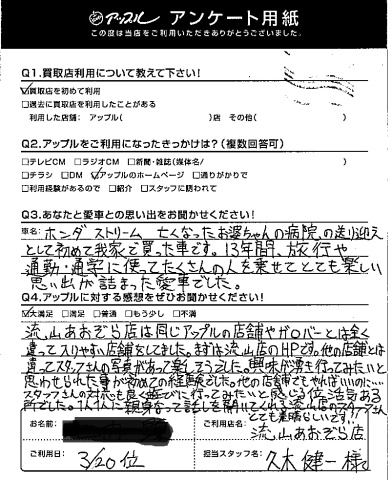 アップル アンケート用紙
この度は当店をご利用いただきありがとうございました。
Q1.買取店利用について教えて下さい!
☑買取店を初めて利用
□過去に買取店を利用したことがある
利用した店舗: アップル( )店 その他( )
Q2.アップルをご利用になったきっかけは?(複数回答可)
□テレビCM □ラジオCM □新聞・雑誌(媒体名/ )
□チラシ □DM ☑アップルのホームページ □通りがかりで
□利用経験があるので □紹介 □スタッフに誘われて
Q3.あなたと愛車との思い出をお聞かせください!
車名: ホンダ ストリーム 亡くなったお婆ちゃんの病院の送り迎え
として初めて我家で買った車です。13年間、旅行や
通勤・通学に使ってたくさんの人を乗せてとても楽しい
思い出が詰まった愛車でした。
Q4.アップルに対する感想をぜひお聞かせください!
☑大満足 □満足 □普通 □もう少し □不満
流山あおぞら店は同じアップルの店舗やガリバーとは全く
違って入りやすい店舗をしてました。まずは流山店のHPです。他の店舗とは
違ってスタッフさんの写真があって楽しそうでした。興味が湧き行ってみたいと
思わせられた事が初めての経験でした。他の店舗でもやればいいのに…
スタッフさんの対応も良く遊びに行ってみたいと感じる位活気ある
所でした。1人1人に親身なって話しを聞いてくれる流山店のスタッフさん
とても素晴しいです!!
お名前: ご利用店名: 流山あおぞら店
ご利用日: 3/20位 担当スタッフ名: 久木 健一 様